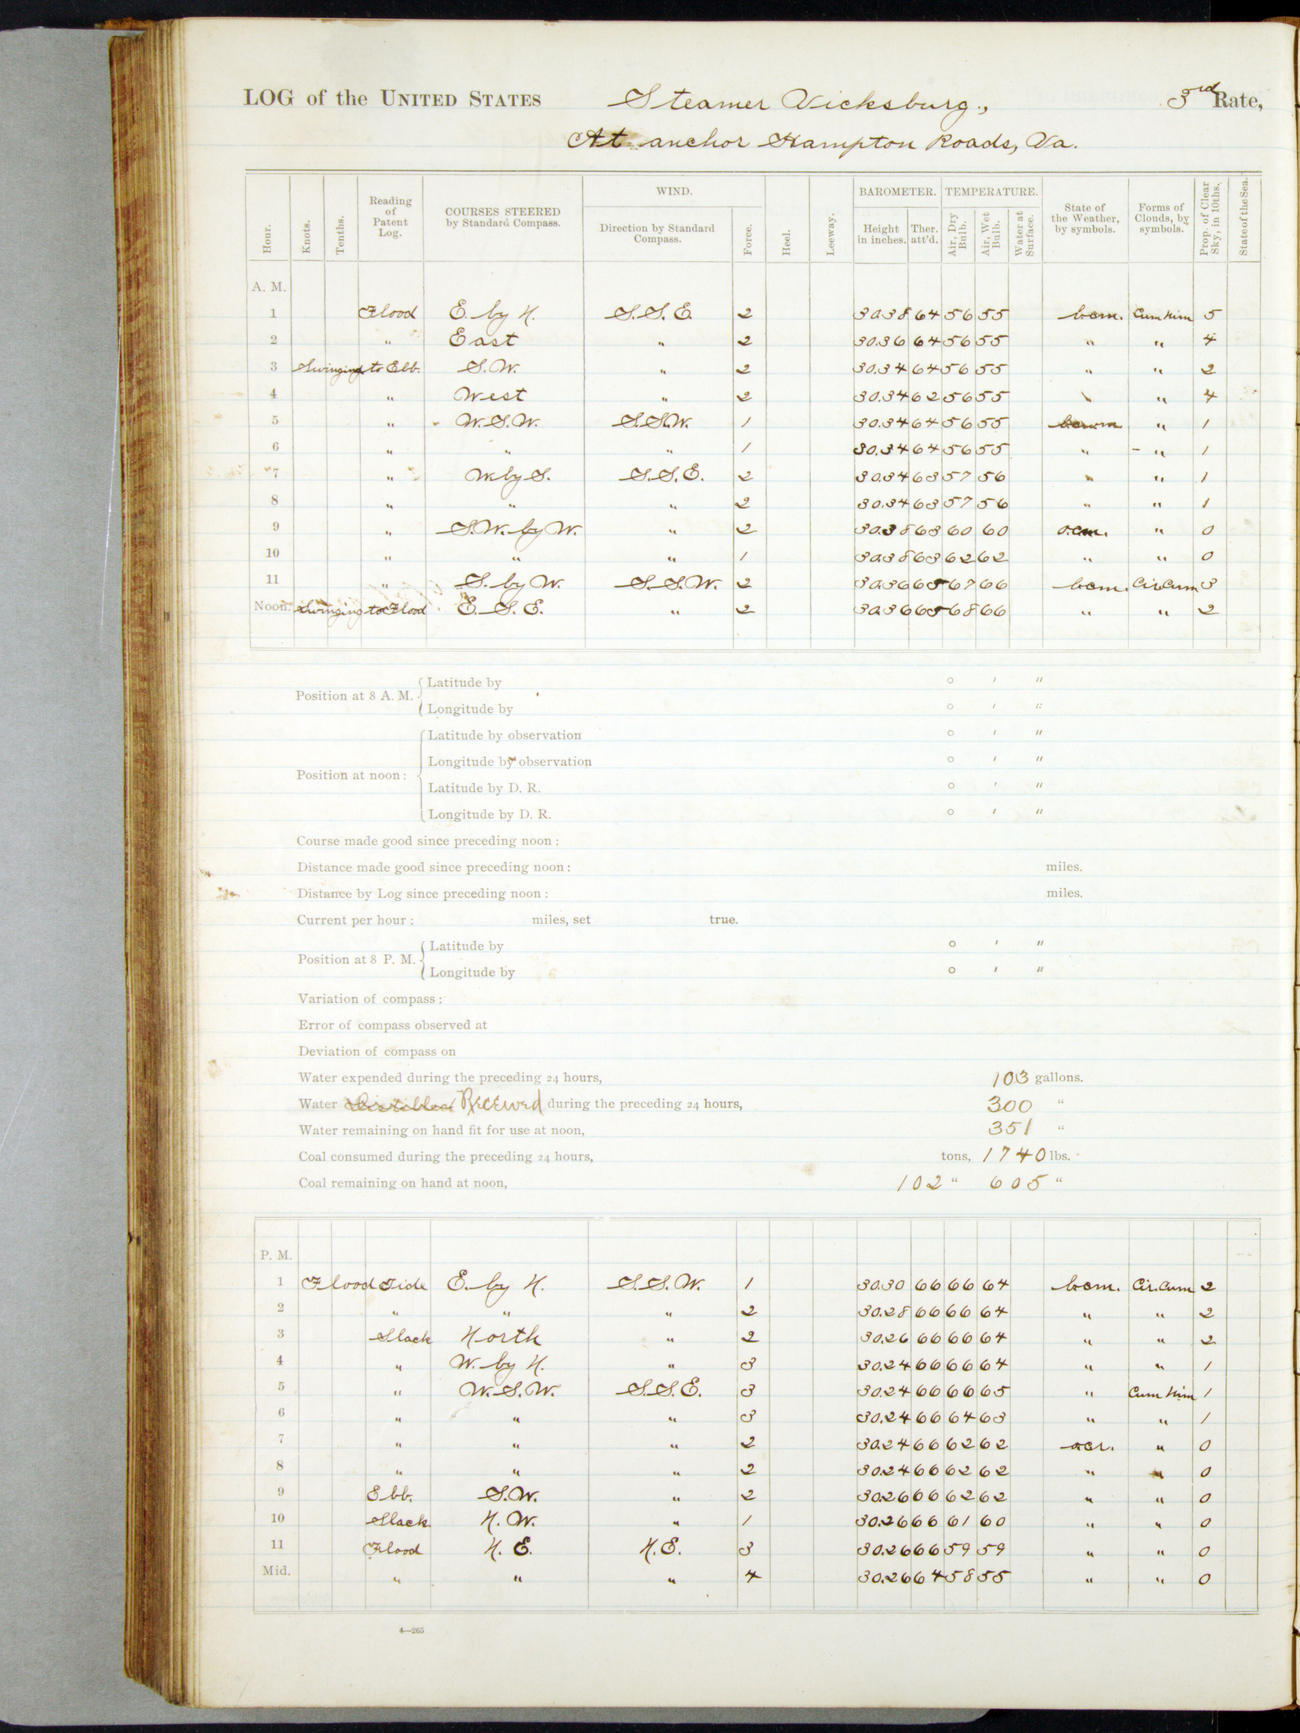 LOG of the UNITED STATES Steamer Vicksburg., 3rd Rate,
At anchor Hampton Roads, Va.
Hour. Knots. Tenths. Reading of Patent Log. COURSES STEERED by Standard Compass. WIND. Direction by Standard Compass. Force. Heel. Leeway. BAROMETER. Height in inches. Ther. att'd. TEMPERATURE. Air, Dry Bulb. Air, Wet Bulb. Water at Surface. State of the Weather, by symbols. Forms of Clouds, by symbols. Prop. of Clear Sky, in 10ths. State of the Sea.
A. M.
1 Flood E. by N. S.S.E. 2 30.38 64 56 55 bcm. Cum Nim 5
2 " East " 2 30.36 64 56 55 " " 4
3 Swinging to Ebb. S.W. " 2 30.34 64 56 55 " " 2
4 " West " 2 30.34 62 56 55 " " 4
5 " W.S.W. S.S.W. 1 30.34 64 56 55 " 1
6 " " " 1 30.34 64 56 55 " " 1
7 " W by S. S.S.E. 2 30.34 63 57 56 " " 1
8 " " " 2 30.34 63 57 56 " " 1
9 " S.W. by W. " 2 30.38 63 60 60 o.cm. " 0
10 " " " 1 30.38 63 62 62 " " 0
11 " S. by W. S.S.W. 2 30.36 65 67 66 bcm. Cir.Cum 3
Noon. Swinging to Flood E.S.E. " 2 30.36 65 68 66 " " 2
Position at 8 A. M. { Latitude by ° ' "
Longitude by ° ' "
Position at noon: { Latitude by observation ° ' "
Longitude by observation ° ' "
Latitude by D. R. ° ' "
Longitude by D. R. ° ' "
Course made good since preceding noon:
Distance made good since preceding noon: miles.
Distance by Log since preceding noon: miles.
Current per hour: miles, set true.
Position at 8 P. M. { Latitude by ° ' "
Longitude by ° ' "
Variation of compass:
Error of compass observed at
Deviation of compass on
Water expended during the preceding 24 hours, 103 gallons.
Water Distilled Received during the preceding 24 hours, 300 "
Water remaining on hand fit for use at noon, 351 "
Coal consumed during the preceding 24 hours, tons, 1740 lbs.
Coal remaining on hand at noon, 102 " 605 "
P. M.
1 Flood Tide E. by N. S.S.W. 1 30.30 66 66 64 bcm. Cir.Cum 2
2 " " " 2 30.28 66 66 64 " " 2
3 Slack North " 2 30.26 66 66 64 " " 2
4 " W. by N. " 3 30.24 66 66 64 " " 1
5 " W.S.W. S.S.E. 3 30.24 66 66 65 " Cum Nim 1
6 " " " 3 30.24 66 64 63 " " 1
7 " " " 2 30.24 66 62 62 ocr. " 0
8 " " " 2 30.24 66 62 62 " " 0
9 Ebb. S.W. " 2 30.26 66 62 62 " " 0
10 Slack N.W. " 1 30.26 66 61 60 " " 0
11 Flood N.E. N.E. 3 30.26 66 59 59 " " 0
Mid. " " " 4 30.26 64 58 55 " " 0
4—265